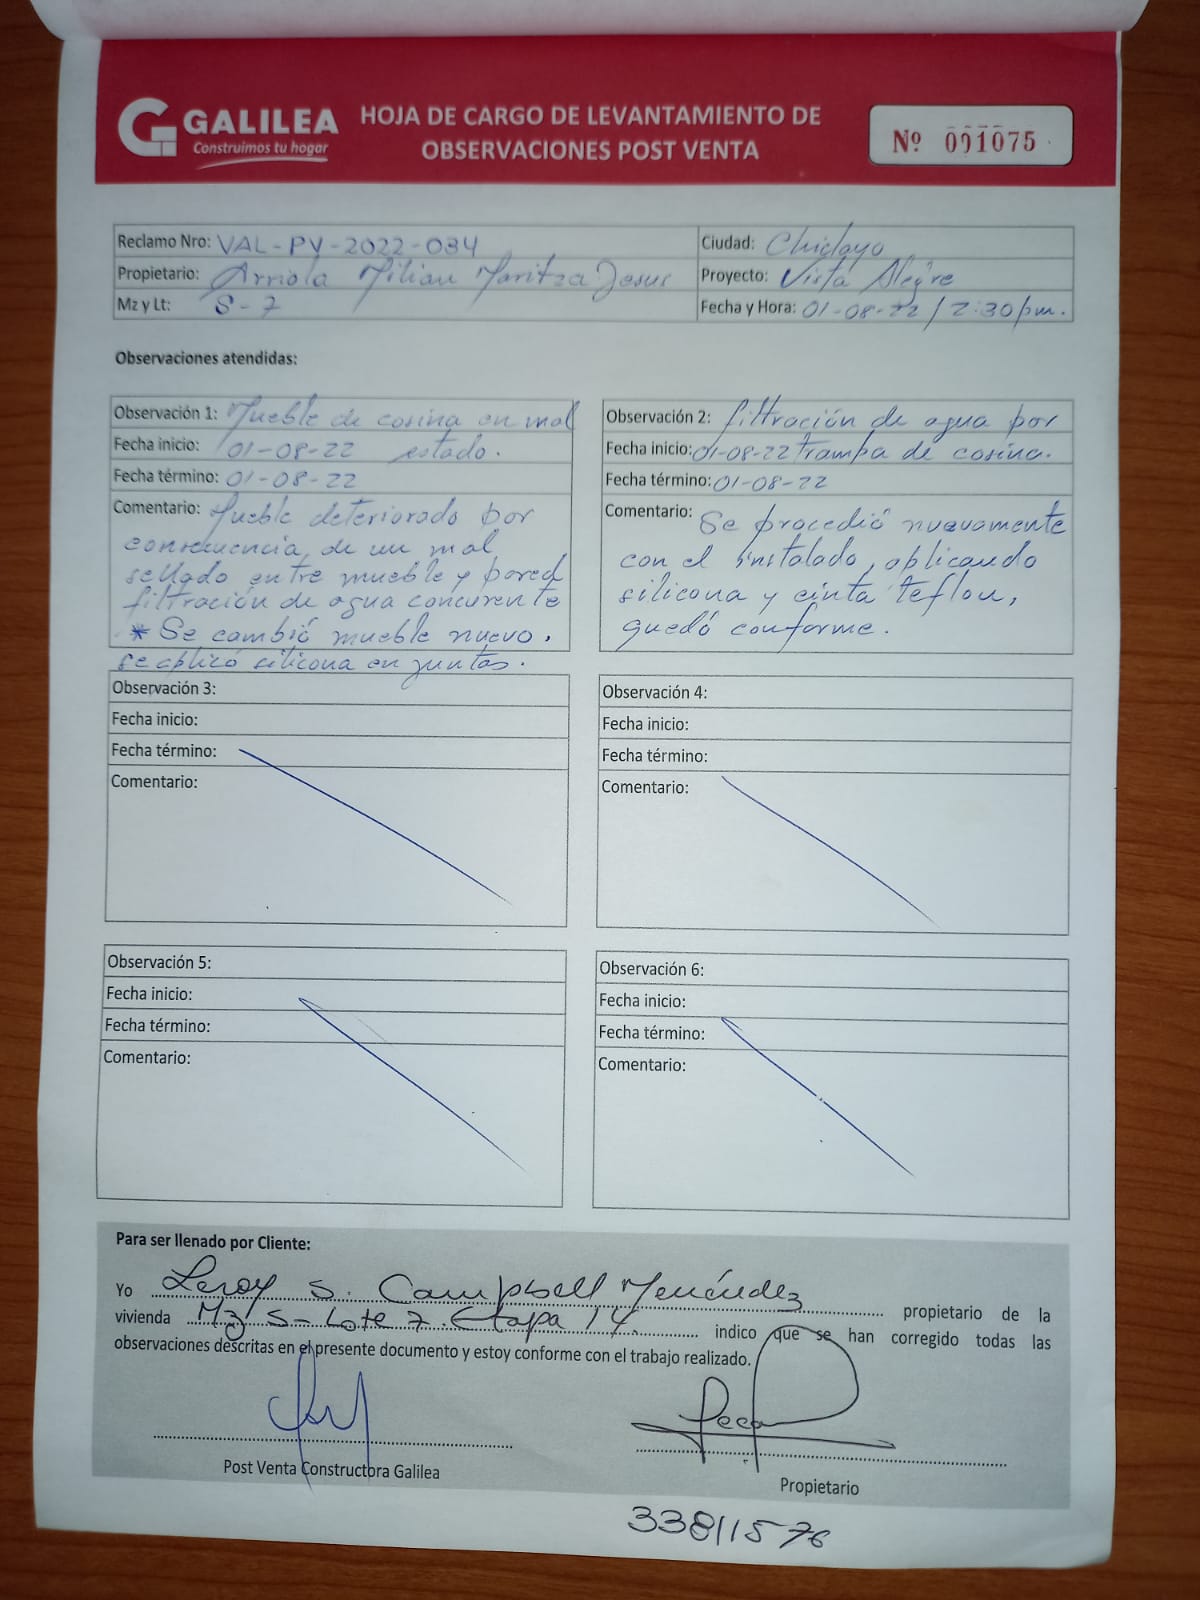 GALILEA
Construimos tu hogar
HOJA DE CARGO DE LEVANTAMIENTO DE
OBSERVACIONES POST VENTA
Nº 001075
Reclamo Nro: VAL-PV-2022-034
Ciudad: Chiclayo
Propietario: Arriola Milian Maritza Jesus
Proyecto: Vista Alegre
Mz y Lt: S-7
Fecha y Hora: 01-08-22 / 2:30 pm.
Observaciones atendidas:
Observación 1: Mueble de cosina en mal
Fecha inicio: 01-08-22 estado.
Fecha término: 01-08-22
Comentario: Mueble deteriorado por
consecuencia de un mal
sellado entre mueble y pared
filtración de agua concurente
* Se cambió mueble nuevo,
se aplicó silicona en juntas.
Observación 2: filtración de agua por
Fecha inicio: 01-08-22 trampa de cosina.
Fecha término: 01-08-22
Comentario: Se procedió nuevamente
con el instalado, aplicando
silicona y cinta teflon,
quedó conforme.
Observación 3:
Fecha inicio:
Fecha término:
Comentario:
Observación 4:
Fecha inicio:
Fecha término:
Comentario:
Observación 5:
Fecha inicio:
Fecha término:
Comentario:
Observación 6:
Fecha inicio:
Fecha término:
Comentario:
Para ser llenado por Cliente:
Yo Leroy S. Campbell Menéndez propietario de la
vivienda Mz S- Lote 7. Etapa 14. indico que se han corregido todas las
observaciones descritas en el presente documento y estoy conforme con el trabajo realizado.
Post Venta Constructora Galilea
Propietario
33811576